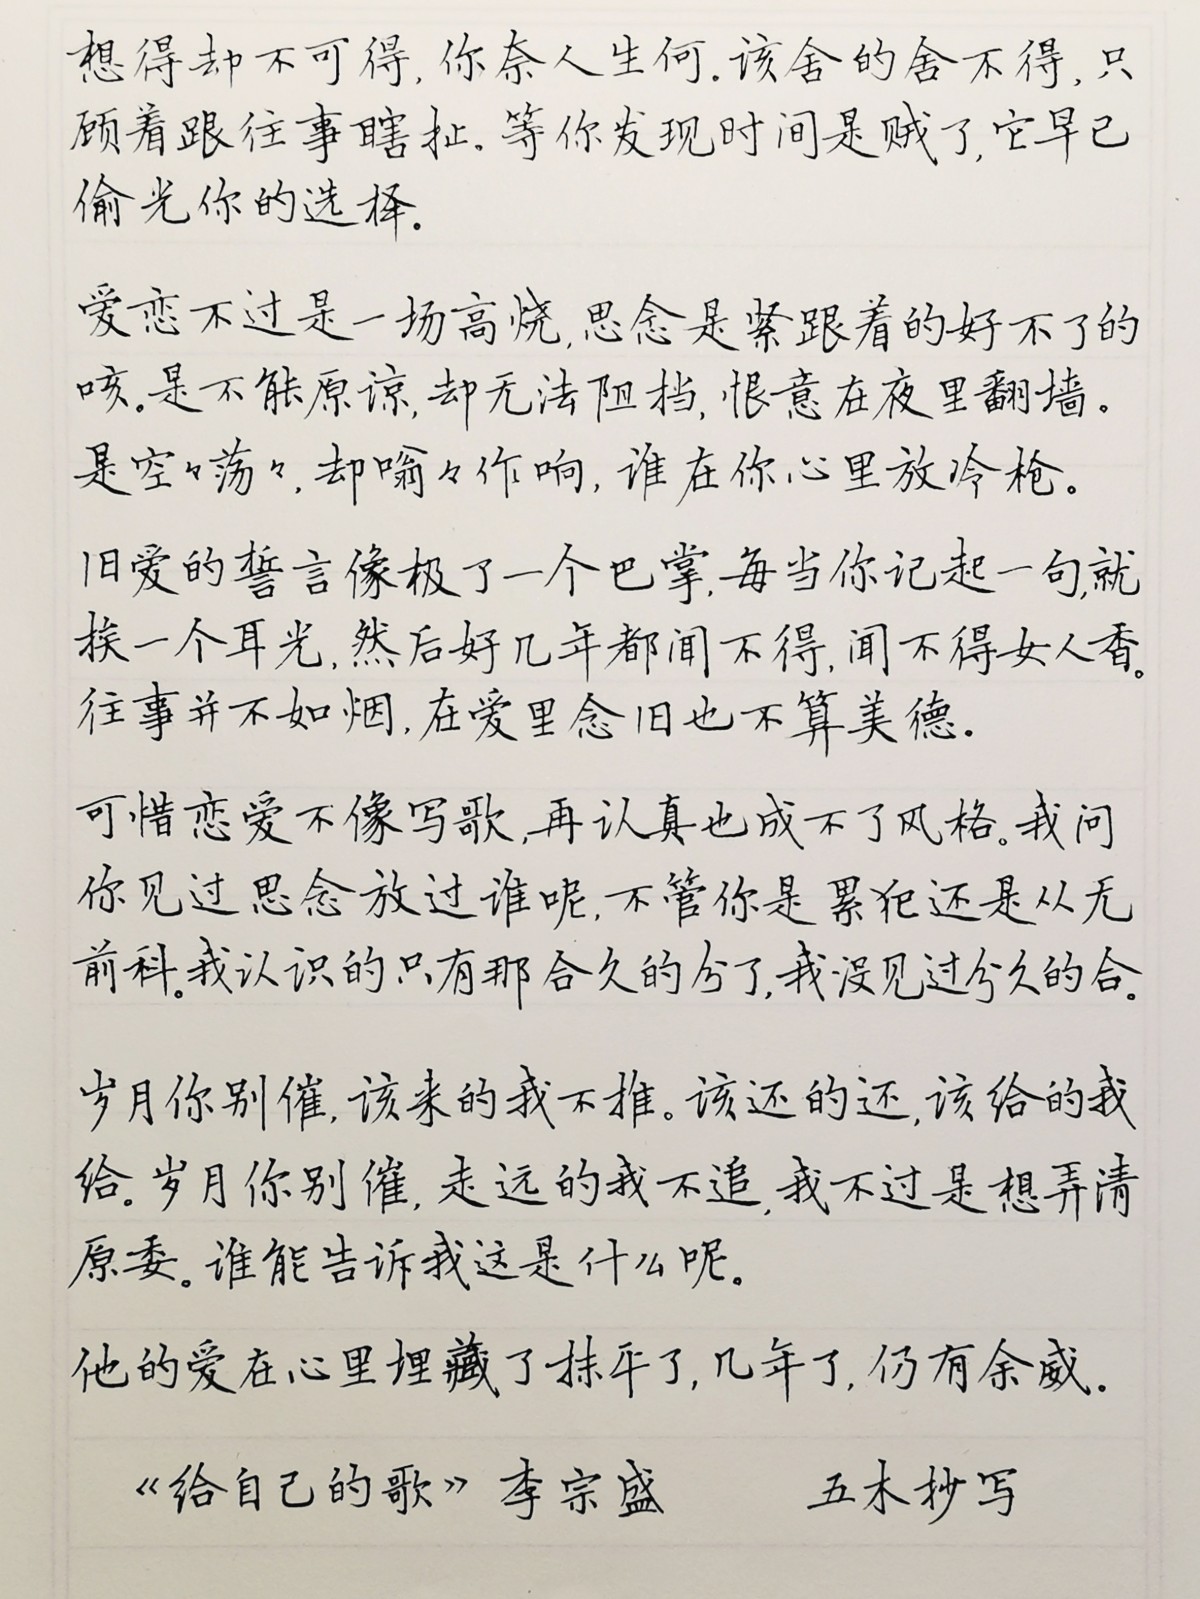 想得却不可得,你奈人生何.该舍的舍不得,只
顾着跟往事瞎扯.等你发现时间是贼了,它早已
偷光你的选择.
爱恋不过是一场高烧,思念是紧跟着的好不了的
咳。是不能原谅,却无法阻挡,恨意在夜里翻墙。
是空々荡々,却嗡々作响,谁在你心里放冷枪。
旧爱的誓言像极了一个巴掌,每当你记起一句,就
挨一个耳光,然后好几年都闻不得,闻不得女人香。
往事并不如烟,在爱里念旧也不算美德.
可惜恋爱不像写歌,再认真也成不了风格。我问
你见过思念放过谁呢,不管你是累犯还是从无
前科。我认识的只有那合久的分了,我没见过分久的合。
岁月你别催,该来的我不推。该还的还,该给的我
给。岁月你别催,走远的我不追,我不过是想弄清
原委。谁能告诉我这是什么呢。
他的爱在心里埋藏了抹平了,几年了,仍有余威.
《给自己的歌》李宗盛 五木抄写